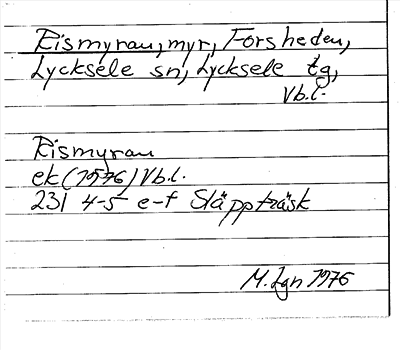 Rismyran, myr, Forsheden,
Lycksele sn, Lycksele tg,
Vb.l.
Rismyran
ek (1976) Vb.l.
23I 4-5 e-f Släppträsk
M. Lgn 1976